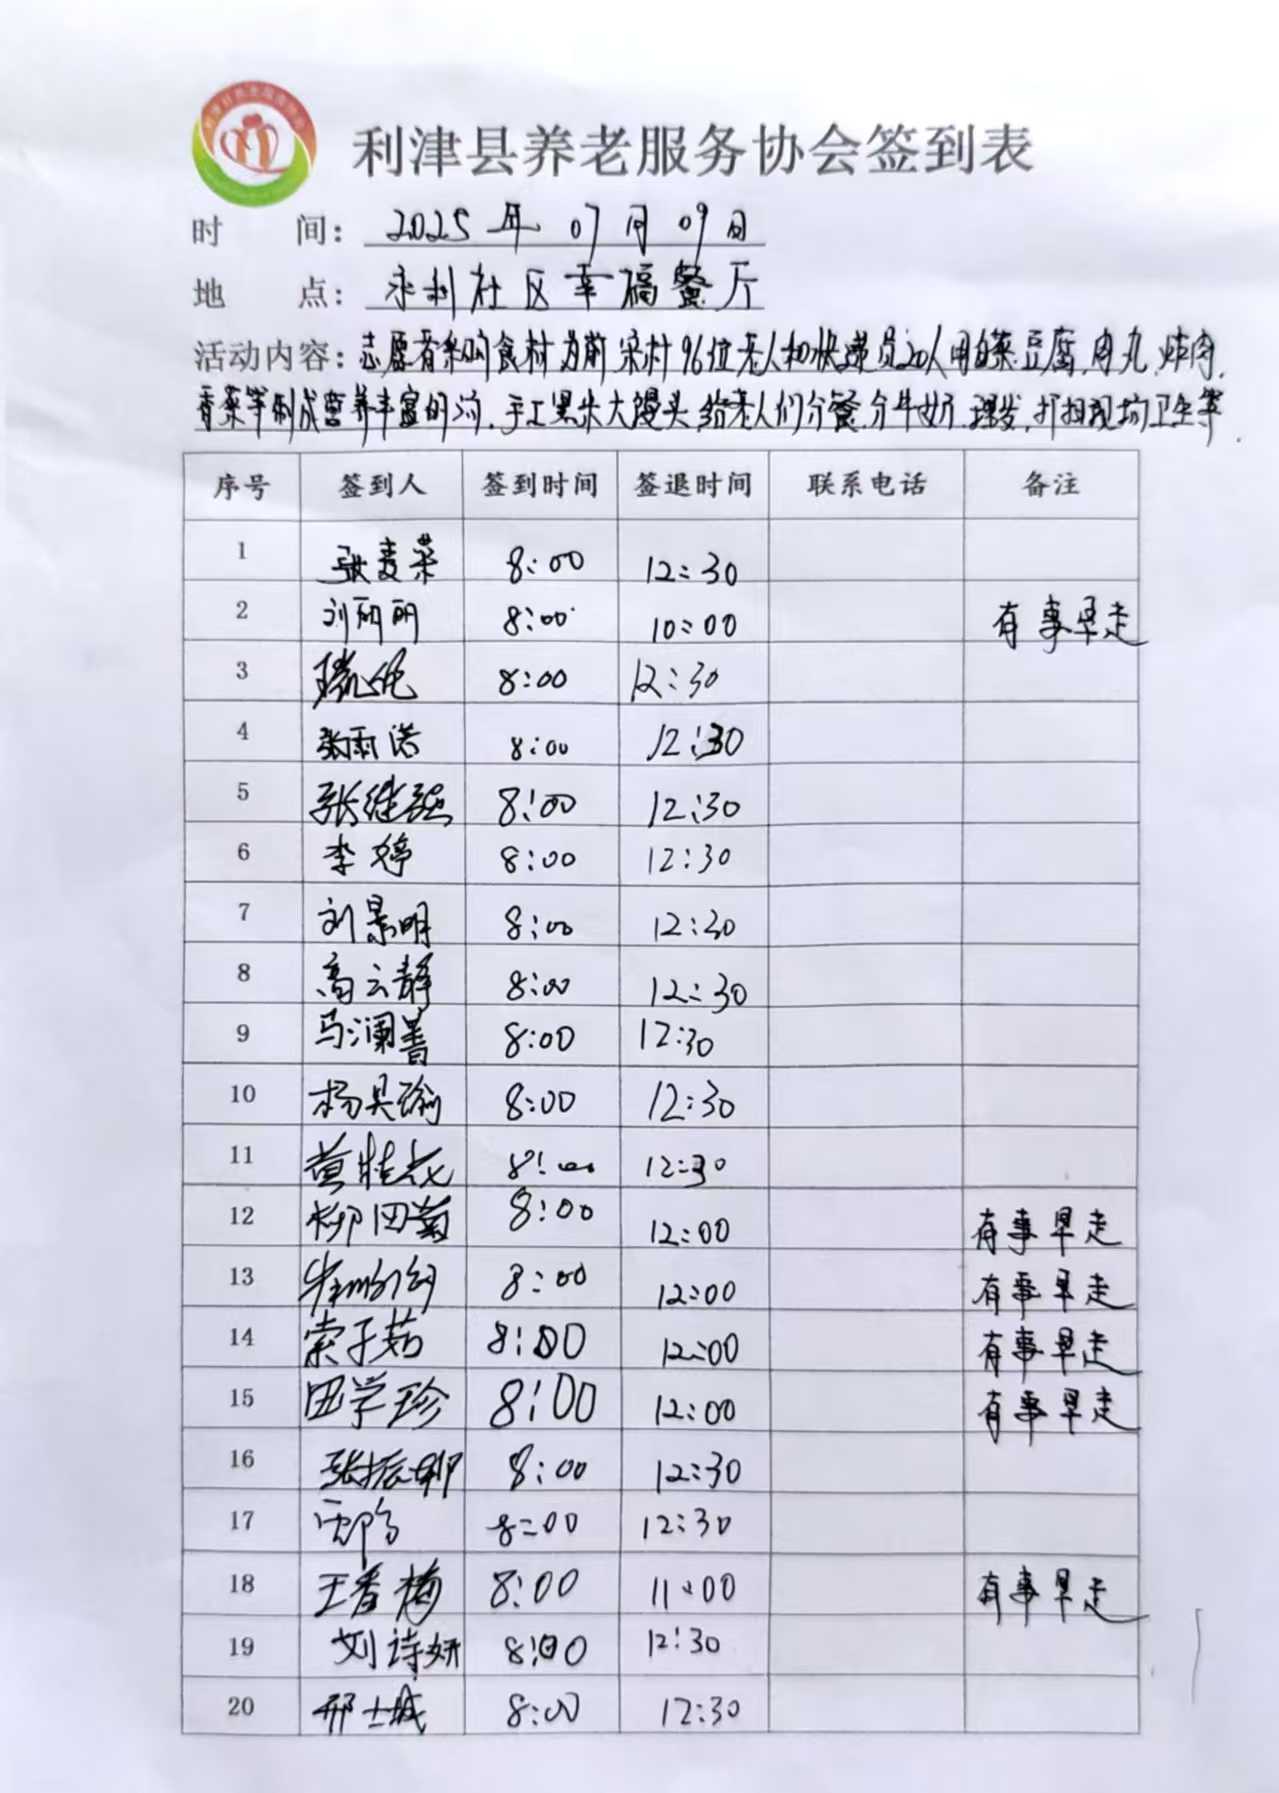 利津县养老服务协会签到表
时 间：2025年07月09日
地 点：永利社区幸福餐厅
活动内容：志愿者采购食材为前宋村96位老人和快递员20人用白菜.豆腐.肉丸.炸肉.
香菜等制成营养丰富的汤.手工黑米大馒头.给老人们分餐.分牛奶.理发,打扫现场卫生等.
序号 签到人 签到时间 签退时间 联系电话 备注
1 张麦菜 8:00 12:30
2 刘丽丽 8:00 10:00 有事早走
3 8:00 12:30
4 张雨诺 8:00 12:30
5 张继强 8:00 12:30
6 李婷 8:00 12:30
7 刘景明 8:00 12:30
8 高云静 8:00 12:30
9 马澜菁 8:00 12:30
10 杨昊瑜 8:00 12:30
11 黄桂花 8:00 12:30
12 柳田菊 8:00 12:00 有事早走
13 8:00 12:00 有事早走
14 索子茹 8:00 12:00 有事早走
15 田学珍 8:00 12:00 有事早走
16 张振卿 8:00 12:30
17 8:00 12:30
18 王香梅 8:00 11:00 有事早走
19 刘诗妍 8:00 12:30
20 邢士城 8:00 12:30